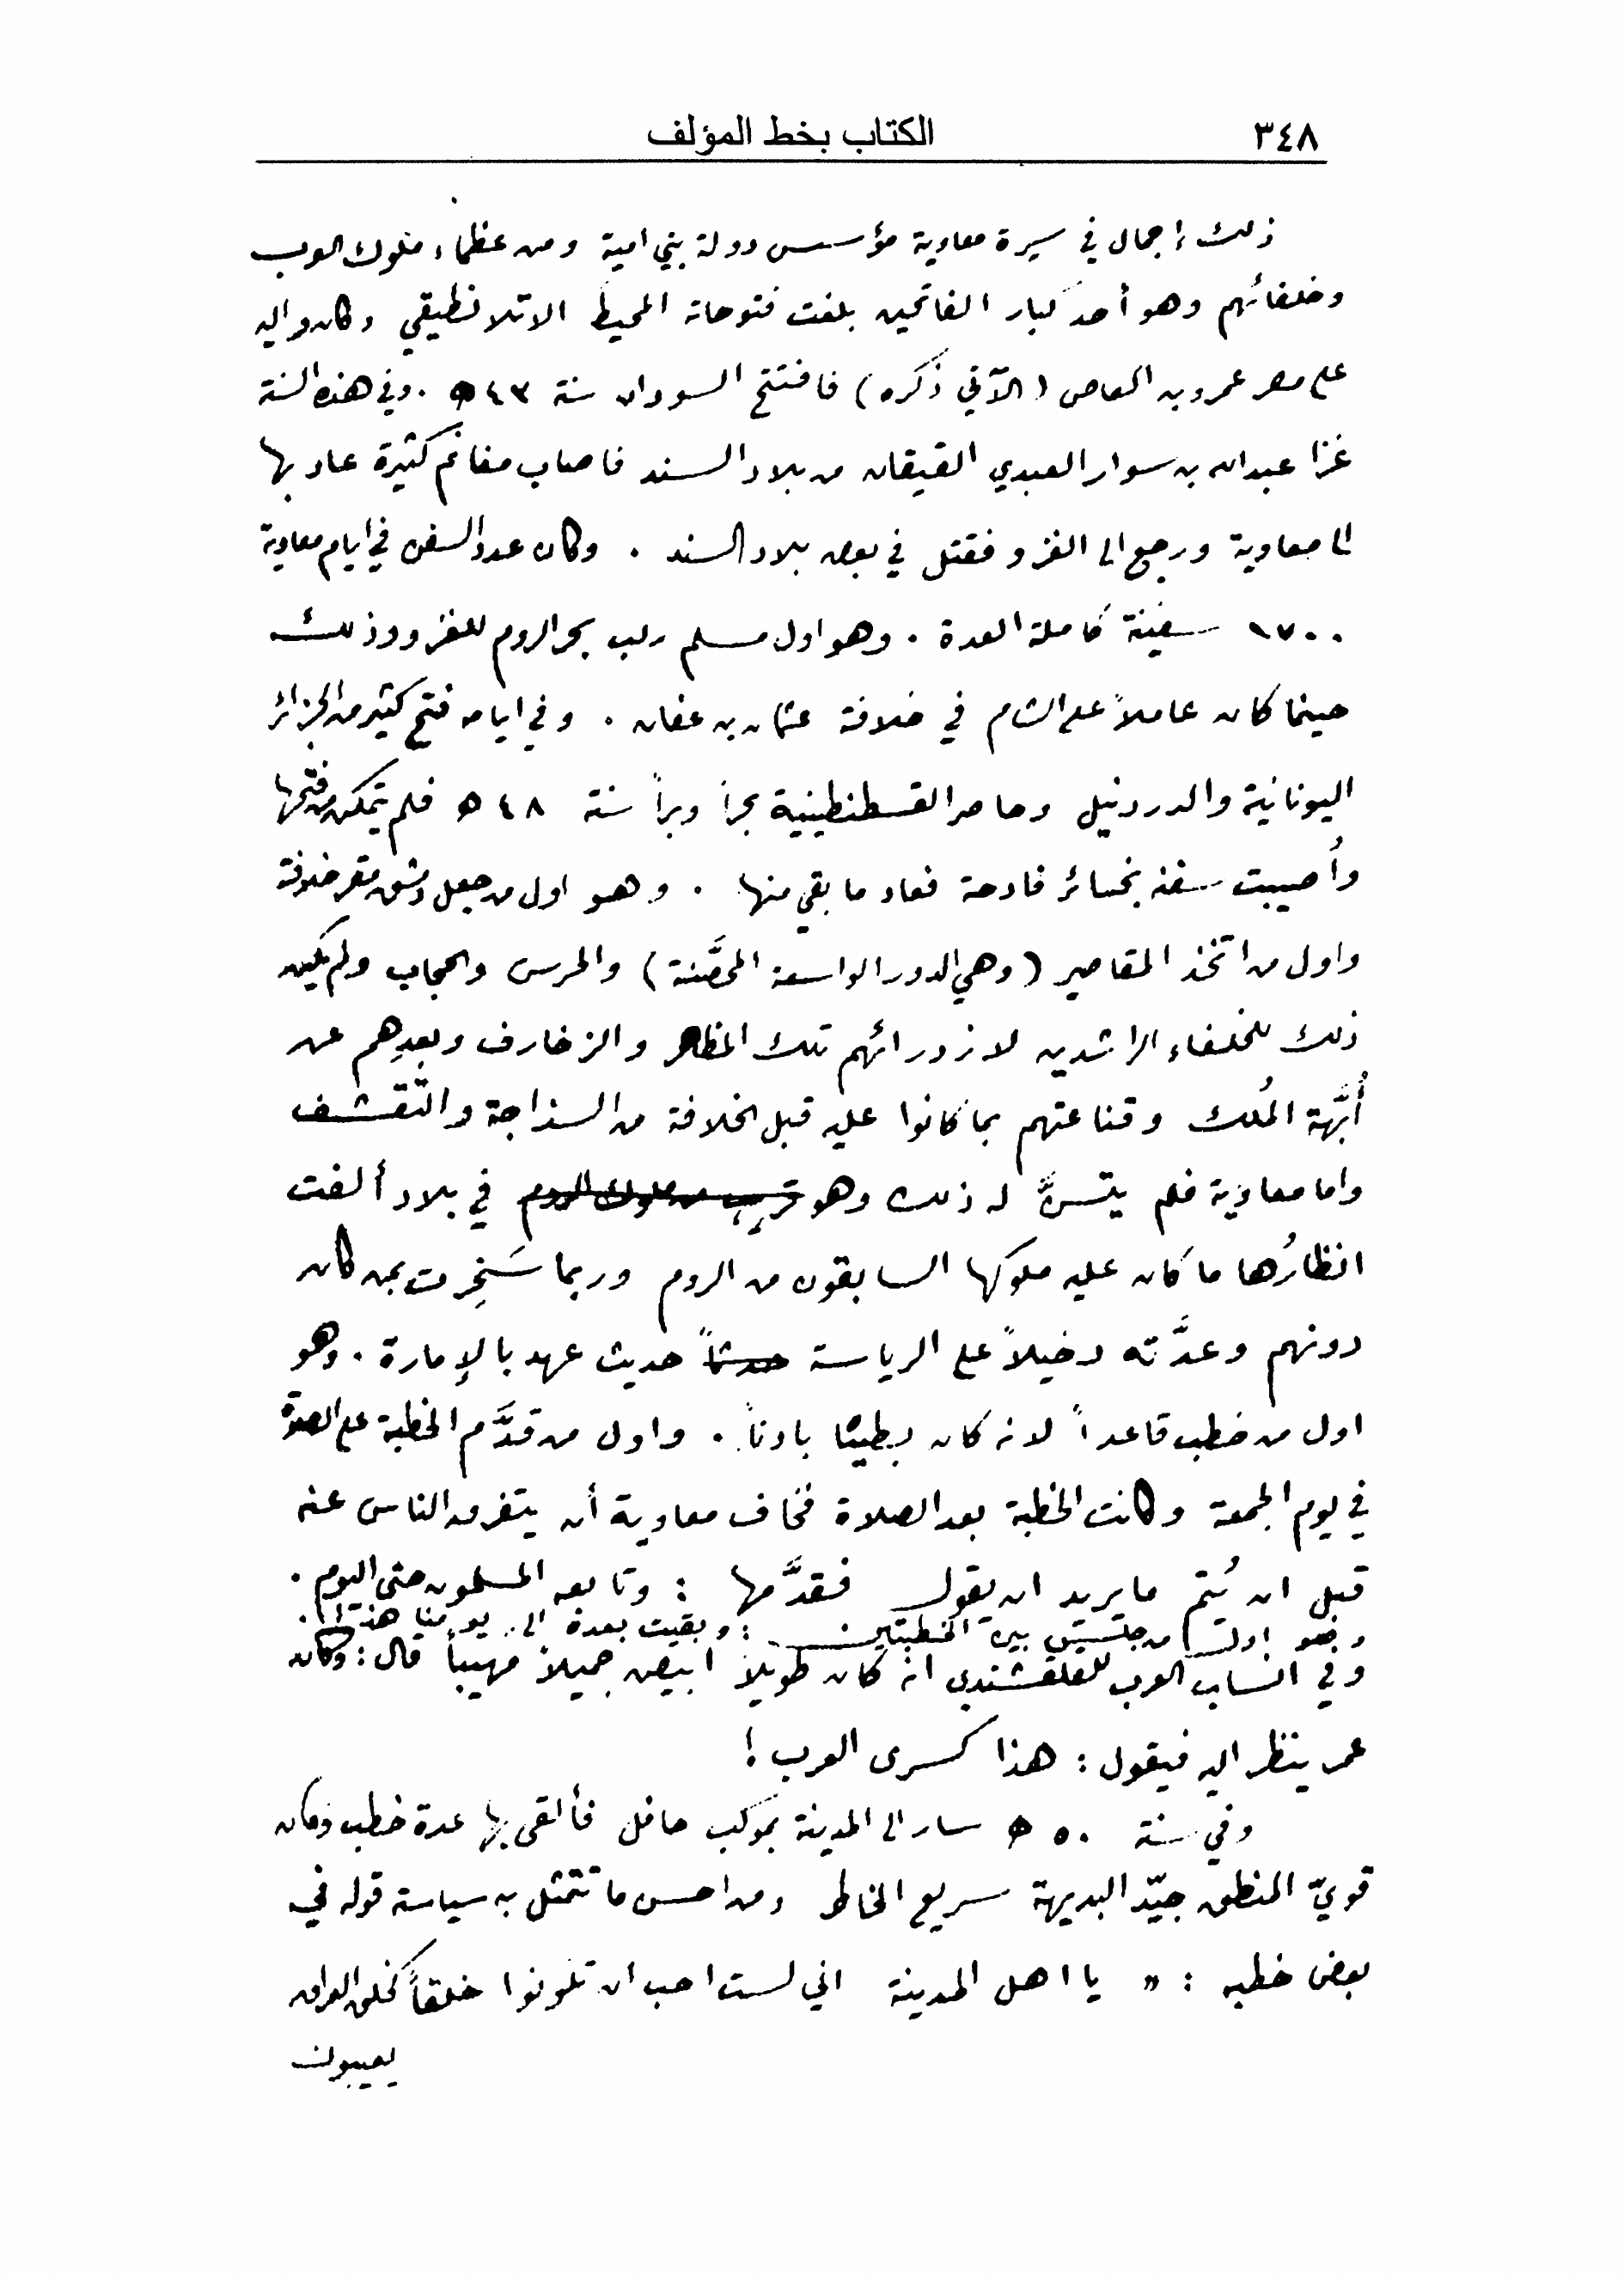 ٣٤٨ الكتاب بخط المؤلف
ذلك إجمال في سيرة معاوية مؤسس دولة بني امية ومن عظماء ملوك العرب
وخلفائهم وهو أحد كبار الفاتحين بلغت فتوحاته المحيط الاتلانطيقي وكان واليه
على مصر عمرو بن العاص (الآتي ذكره) فافتتح السودان سنة ٤٣ ه . وفي هذه السنة
غزا عبدالله بن سوار العبدي القيقان من بلاد السند فاصاب مغانم كثيرة عاد بها
الى معاوية ورجع الى الغزو فقتل في بعض بلاد السند . وكان عدد السفن في ايام معاوية
١٧٠٠ سفينة كاملة العدة . وهو اول مسلم ركب بحر الروم للغزو وذلك
حينما كان عاملاً على الشام في خلافة عثمان بن عفان . وفي ايامه فتح كثير من الجزائر
اليونانية والدردنيل وحاصر القسطنطينية بحراً وبراً سنة ٤٨ ه فلم يتمكن من فتحها
وأُصيبت سفنه بخسائر فادحة فعاد ما بقي منها . وهو اول من جعل دمشق مقر خلافة
واول من اتخذ المقاصير (وهي الدور الواسعة المحصَّنة) والحرس والحجاب ولم يكن
ذلك للخلفاء الراشدين لازدرائهم تلك المظاهر والزخارف وبعدِهم عن
أُبَّهة المُلك وقناعتهم بما كانوا عليه قبل الخلافة من السذاجة والتقشف
واما معاوية فلم يتسنَّ له ذلك وهو قريب من ملوك الروم في بلاد ألفت
انظارُها ما كان عليه ملوكها السابقون من الروم وربما سَخِرت بمن كان
دونهم وعدَّته دخيلاً على الرياسة حدثاً حديث عهد بالإمارة . وهو
اول من خطب قاعداً لانه كان بطيناً بادناً . واول من قدَّم الخطبة على الصلاة
في يوم الجمعة وكانت الخطبة بعد الصلاة فخاف معاوية أن يتفرق الناس عنه
قبل ان يُتم ما يريد ان يقول فقدَّمها : وتابعه المسلمون حتى اليوم .
وهو اول من جلس بين الخطبتين : وبقيت بعده الى يومنا هذا .
وفي انساب العرب للقلقشندي انه كان طويلاً ابيض جميلاً مهيباً قال : وكان
عمر ينظر اليه فيقول : هذا كسرى العرب !
وفي سنة ٥٠ ه سار الى المدينة بموكب حافل فألقى بها عدة خطب وكان
قويّ المنطق جيّد البديهة سريع الخاطر ومن احسن ما تتمثل به سياسته قوله في
بعض خطبه : « يا اهل المدينة اني لست احب ان تكونوا خلقاً كخلق العراق
يعيبون